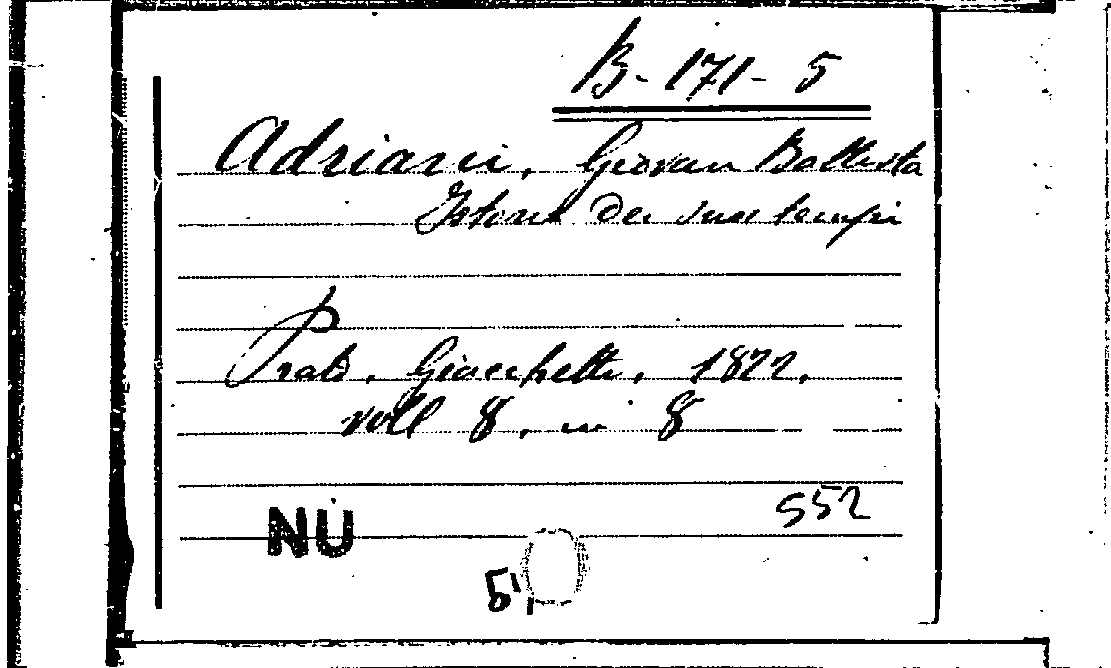 B-171-5
Adriani, Giovan Battista
Istoria dei suoi tempi
Prato, Giachetti, 1822,
voll 8, in 8
552
NU
5,